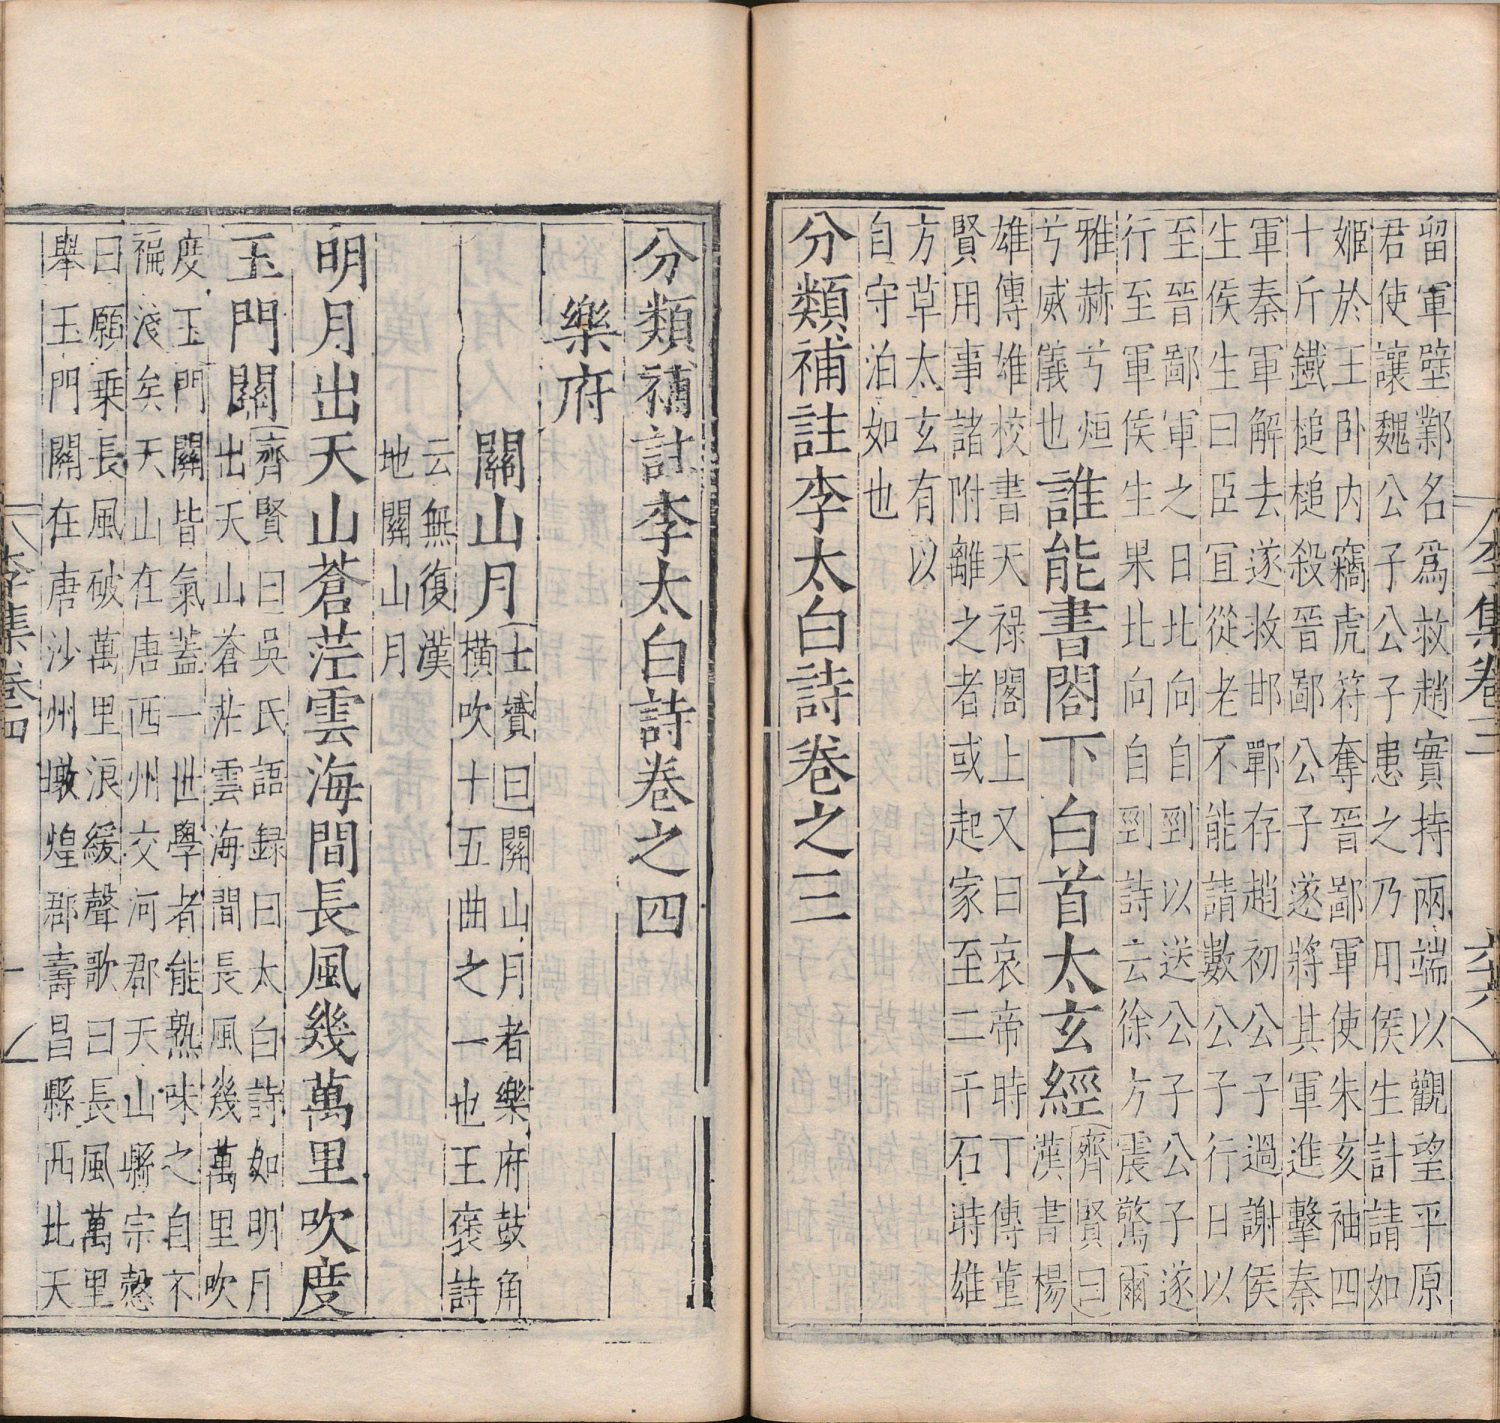 李集卷三
留軍壁鄴名爲救趙實持兩端以觀望平原
君使讓魏公子公子患之乃用侯生計請如
姬於王卧内竊虎符奪晉鄙軍使朱亥袖四
十斤鐵槌槌殺晉鄙公子遂將其軍進擊秦
軍秦軍解去遂救邯鄲存趙初公子過謝侯
生侯生曰臣宜從老不能請數公子行日以
至晉鄙軍之日北向自剄以送公子公子遂
行至軍侯生果北向自剄詩云徐方震驚爾
雅赫兮烜
兮威儀也
誰能書閣下白首太玄經齊賢曰
漢書楊
雄傳雄校書天禄閣上又曰哀帝時丁傳董
賢用事諸附離之者或起家至二千石時雄
方草太玄有以
自守泊如也
分類補註李太白詩卷之三
分類補註李太白詩卷之四
樂府
關山月士贇曰關山月者樂府鼓角
橫吹十五曲之一也王褒詩
云無復漢
地關山月
明月出天山蒼茫雲海間長風幾萬里吹度
玉門關齊賢曰吳氏語録曰太白詩如明月
出天山蒼茫雲海間長風幾萬里吹
度玉門關皆氣蓋一世學者能熟味之自不
褊淺矣天山在唐西州交河郡天山縣宗愨
曰願乗長風破萬里浪緩聲歌曰長風萬里
舉玉門關在唐沙州燉煌郡壽昌縣西北天
李集卷四 一